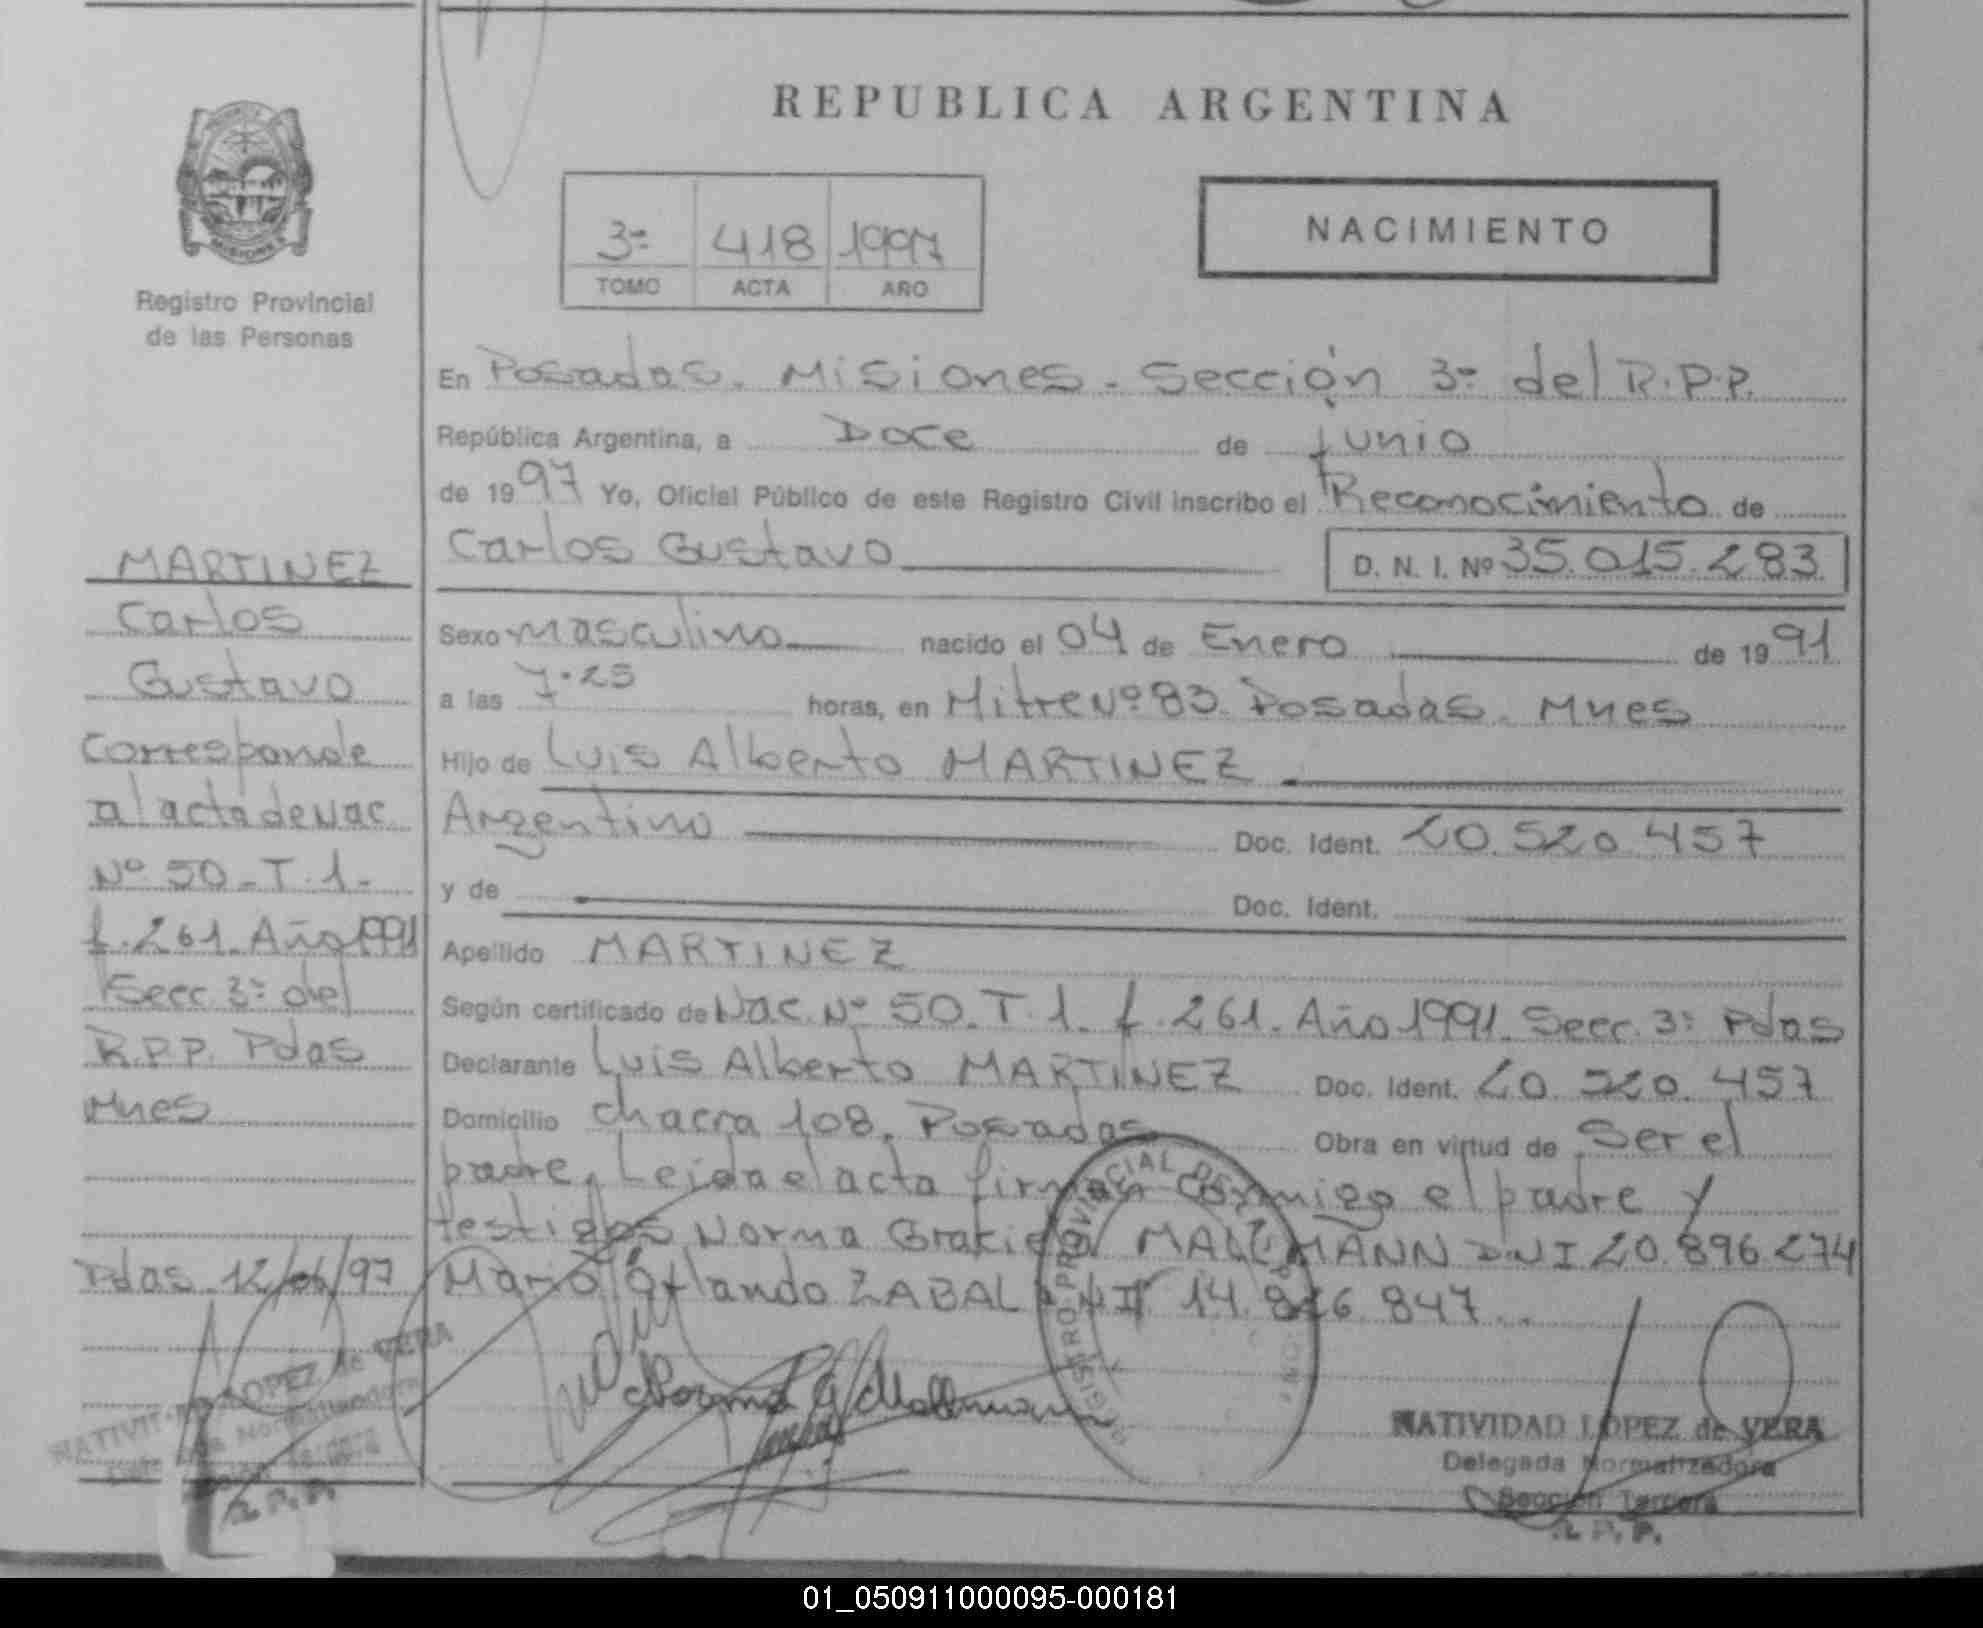 REPUBLICA ARGENTINA
MISIONES
Registro Provincial
de las Personas
3ª 418 1997
TOMO ACTA AÑO
NACIMIENTO
En Posadas. Misiones. Sección 3ª del R.P.P.
República Argentina, a Doce de Junio
de 1997 Yo, Oficial Público de este Registro Civil inscribo el Reconocimiento de
Carlos Gustavo D. N. I. Nº 35.015.283
Sexo masculino nacido el 04 de Enero de 1991
a las 7.25 horas, en Mitre Nº 83. Posadas. Mnes
Hijo de Luis Alberto MARTINEZ
Argentino Doc. Ident. 20.520.457
y de Doc. Ident.
Apellido MARTINEZ
Según certificado de Nac. Nº 50. T. 1. f. 261. Año 1991. Secc. 3ª Pdas
Declarante Luis Alberto MARTINEZ Doc. Ident. 20.520.457
Domicilio chacra 108. Posadas Obra en virtud de Ser el
padre. Leida el acta firman conmigo el padre y
testigos Norma Graciela MALLMANN DNI 20.896.274
Mario Orlando ZABAL DNI 14.846.847.
MARTINEZ
Carlos
Gustavo
Corresponde
al acta de Nac
Nº 50. T. 1.
f. 261. Año 1991
Secc. 3ª del
R.P.P. Pdas
Mnes
Pdas 12/06/97
NATIVIDAD LOPEZ de VERA
Delegada Normalizadora
R. P. P.
Norma G. Mallmann
REGISTRO PROVINCIAL DE
NATIVIDAD LOPEZ de VERA
Delegada Normalizadora
Sección Tercera
R. P. P.
01_050911000095-000181